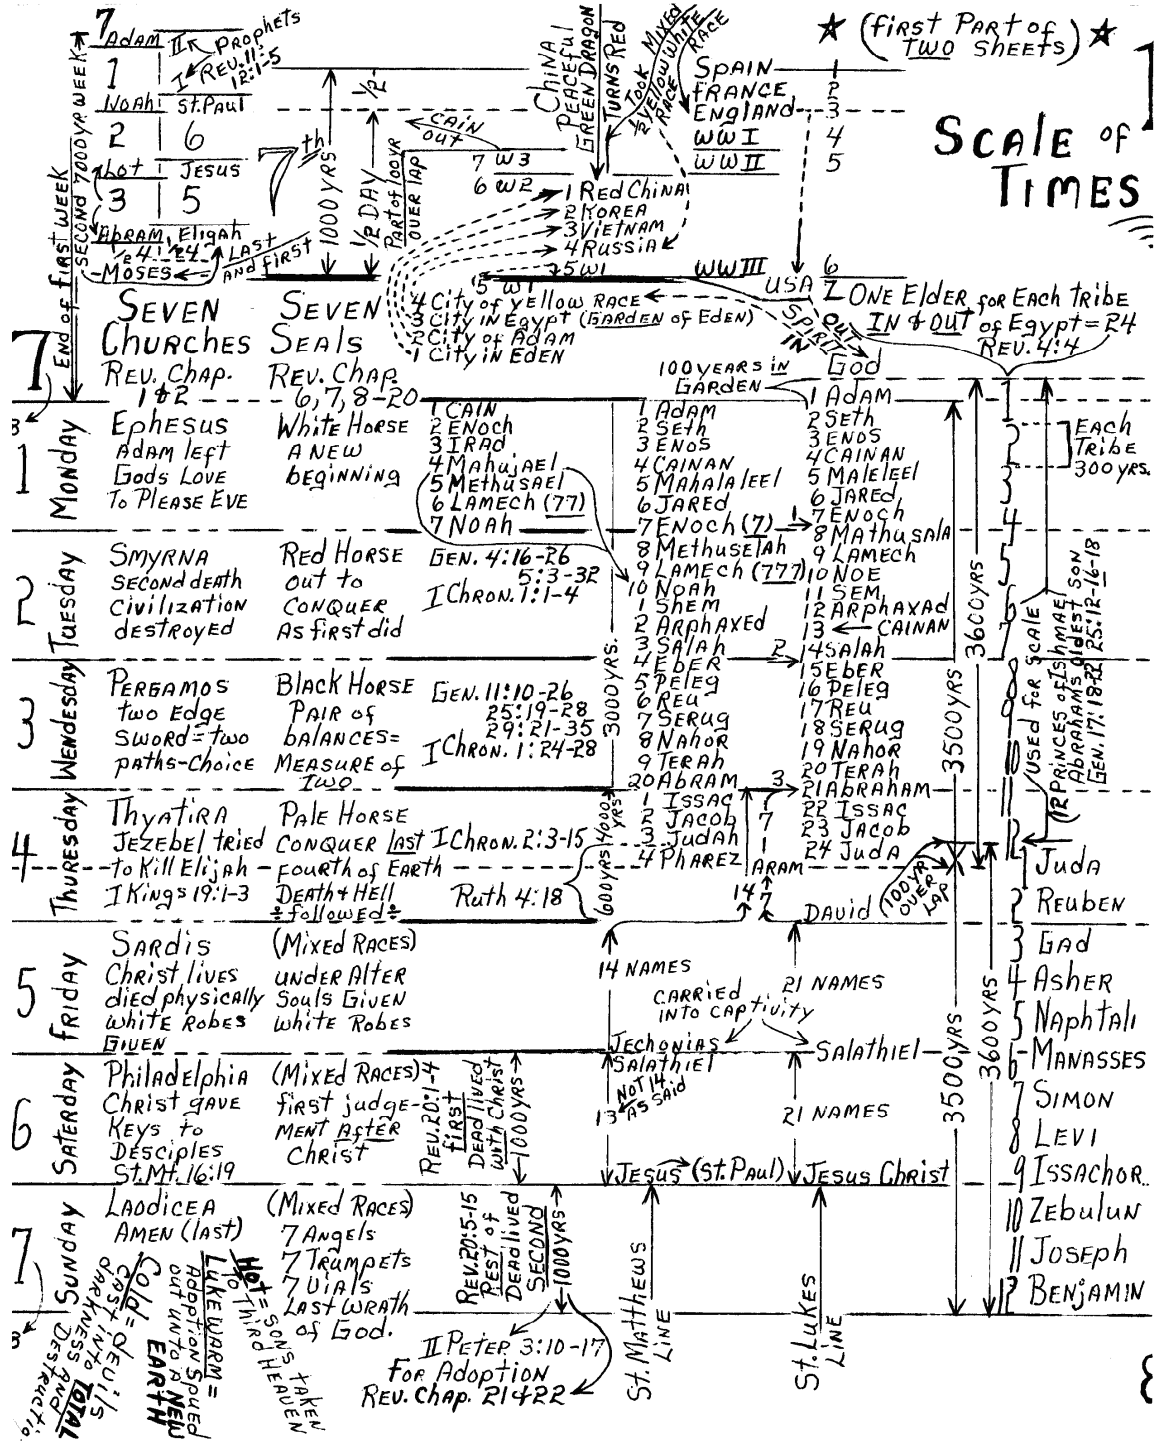 ★ (first Part of
TWO Sheets) ★
1
Scale of
TIMES
7
Adam
II Prophets
I Rev. 11:
12:1-5
1
Noah
St. Paul
2
6
Lot
Jesus
3
5
Abram
Eligah
1/24
1/24
Moses
LAST
AND first
End of first week
SECOND 7000 YR WEEK
7th
1000 YRS
1/2
1/2 DAY
Part of 100 YR
OVER lap
CAIN
out
7 W3
6 W2
China
PEACEFUL
GREEN DRAGON
TURNS Red
TOOK
1/2 yellow White
RACE
MIXED
yellow White
RACE
SPAIN 1
FRANCE 2
England 3
WW I 4
WW II 5
1 Red China
2 Korea
3 Vietnam
4 Russia
5 W1
WW III 6
USA 7
5 W1
4 City of yellow RACE
3 City in Egypt (GARDEN of EdEN)
2 City of Adam
1 City in EdEN
SPIRIT
IN
OUT
God
ONE Elder for Each Tribe
IN & OUT of Egypt = 24
Rev. 4:4
100 YEARS in
GARDEN
7
SEVEN
Churches
Rev. Chap.
1 & 2
SEVEN
SEALS
Rev. Chap.
6, 7, 8-20
1
MONDAY
Ephesus
Adam left
Gods Love
To Please Eve
White Horse
A New
beginning
1 CAIN
2 ENoch
3 IRAd
4 MahujAEl
5 MethusAEl
6 LAMECH (77)
7 NOAh
2
Tuesday
Smyrna
Second death
Civilization
destroyed
Red Horse
out to
Conquer
As first did
Gen. 4:16-26
5:3-32
I Chron. 1:1-4
3
Wendesday
Pergamos
two Edge
Sword = two
paths-Choice
Black Horse
Pair of
balances =
Measure of
Two
Gen. 11:10-26
25:19-28
29:21-35
I Chron. 1:24-28
4
Thuresday
Thyatira
Jezebel tried
to Kill Elijah
I Kings 19:1-3
Pale Horse
Conquer Last
fourth of Earth
Death + Hell
÷ followed ÷
I Chron. 2:3-15
Ruth 4:18
5
Friday
Sardis
Christ lives
died physically
White Robes
Given
(Mixed Races)
under Alter
Souls Given
White Robes
6
Saterday
Philadelphia
Christ gave
Keys to
Desciples
St. Mt. 16:19
(Mixed Races)
first judge-
ment After
Christ
Rev. 20:1-4
first
Dead lived
with Christ
1000 YRS
7
Sunday
Laodicea
Amen (last)
(Mixed Races)
7 Angels
7 Trumpets
7 Vials
Last Wrath
of God.
Rev. 20:5-15
Rest of
Dead lived
SECOND
1000 YRS
II Peter 3:10-17
For Adoption
Rev. Chap. 21 & 22
Hot = Sons taken
to Third Heaven
Luke Warm =
Adoption Spued
out unto a NEW
EARTH
Cold = devils
cast into TOTAL
darkness and
Destructio
3000 YRS.
1 Adam
2 Seth
3 Enos
4 Cainan
5 Mahalaleel
6 Jared
7 Enoch (7)
8 Methuselah
9 Lamech (777)
10 Noah
1 Shem
2 Arphaxed
3 Salah
4 Eber
5 Peleg
6 Reu
7 Serug
8 Nahor
9 Terah
20 Abram
1 Issac
2 Jacob
3 Judah
4 Pharez
4000 YRS
600 YRS
1
2
3
7
Aram
14
7
1 Adam
2 Seth
3 Enos
4 Cainan
5 Maleleel
6 Jared
7 Enoch
8 Mathusala
9 Lamech
10 Noe
11 Sem
12 Arphaxad
13 ← Cainan
14 Salah
15 Eber
16 Peleg
17 Reu
18 Serug
19 Nahor
20 Terah
21 Abraham
22 Issac
23 Jacob
24 Juda
David
(100 YR
OVER
LAP)
14 NAMES
21 NAMES
CARRIED
INTO CAPtivity
Jechonias
Salathiel
Salathiel
13
NOT 14
AS SAID
21 NAMES
Jesus (St. Paul)
Jesus Christ
St. Matthews
Line
St. Lukes
Line
3500 YRS
3600 YRS
3500 YRS
3600 YRS
1
2
3
4
5
6
7
8
9
10
11
12
Each
Tribe
300 yrs.
Used for Scale
(12 Princes of Ishmael
Abrahams oldest Son
Gen. 17:18-22 25:12-16-18
Juda
2 Reuben
3 Gad
4 Asher
5 Naphtali
6 Manasses
7 Simon
8 Levi
9 Issachor
10 Zebulun
11 Joseph
12 Benjamin